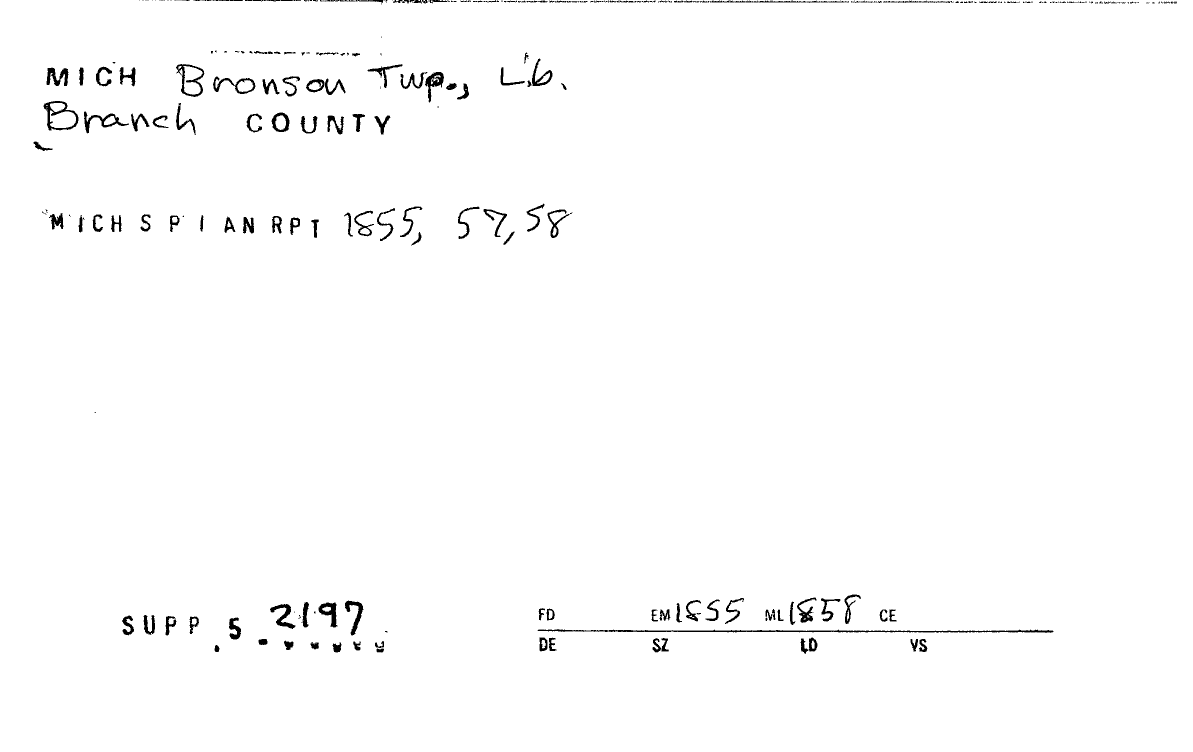 MICH Bronson Twp., Lib.
Branch COUNTY
MICH S P I AN RPT 1855, 57, 58
SUPP 5 2197
FD EM 1855 ML 1858 CE
DE SZ LD VS